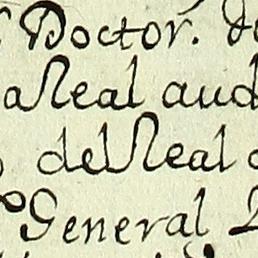 Doctor. de
a Real aud
del Real
General